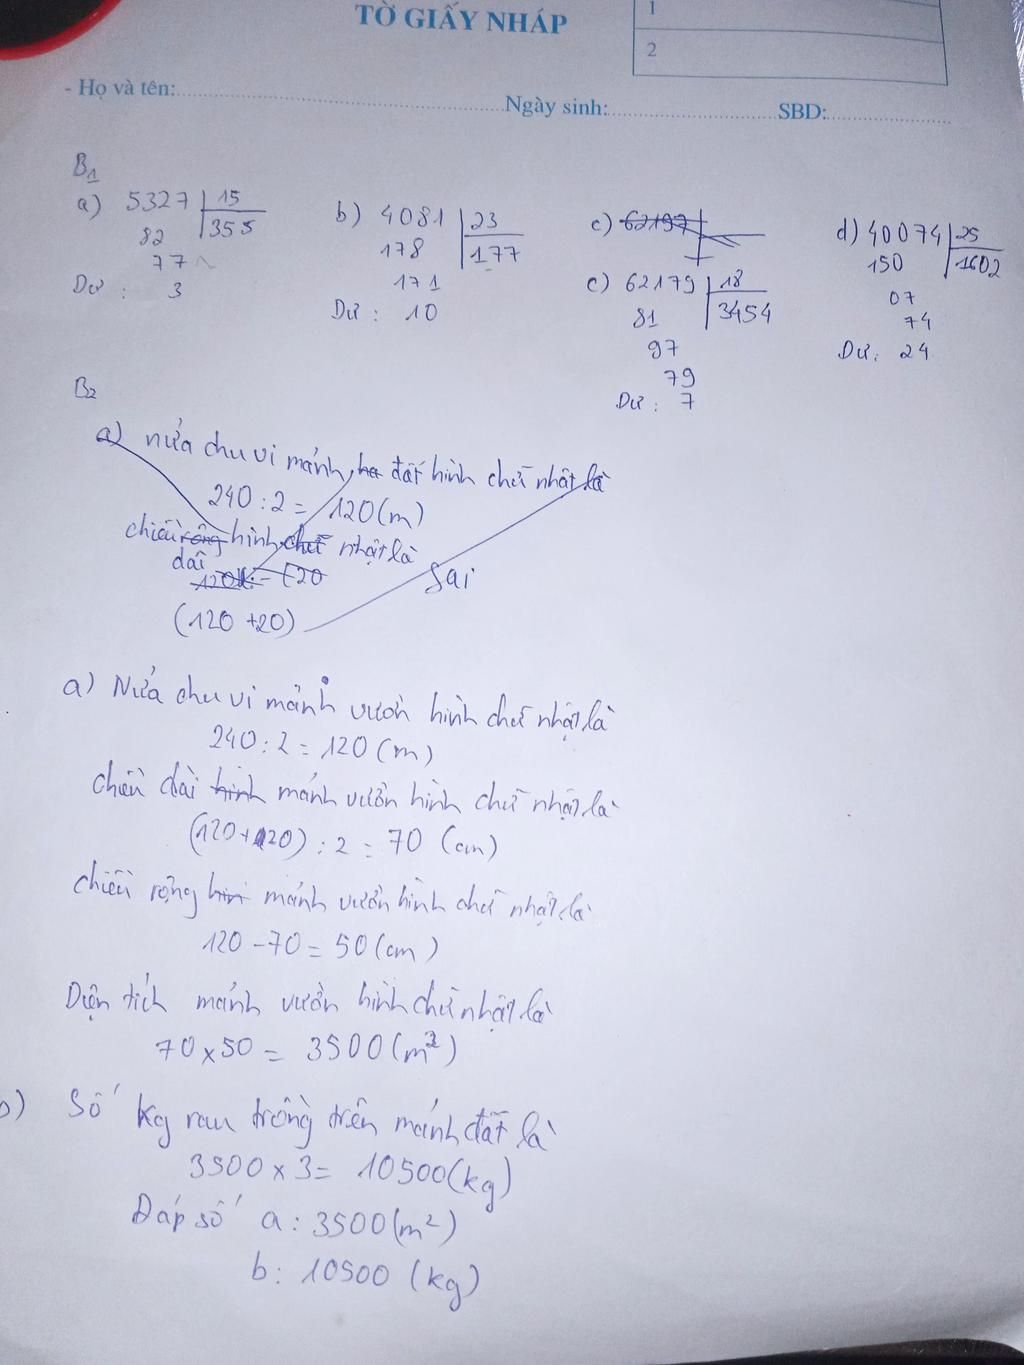 TỜ GIẤY NHÁP
1
2
- Họ và tên:
Ngày sinh:
SBD:
B1
a) 5327 15
82 355
77
Dư : 3
b) 4081 23
178 177
171
Dư : 10
c) 62197
c) 62179 18
81 3454
97
79
Dư : 7
d) 40074 25
150 1602
07
74
Dư: 24
B2
a) nửa chu vi mảnh đất hình chữ nhật là
240 : 2 = 120 (m)
chiều rộng hình chữ nhật là
dài
(120 + 20)
Sai
a) Nửa chu vi mảnh vườn hình chữ nhật là
240 : 2 = 120 (m)
chiều dài hình mảnh vườn hình chữ nhật là
(120 + 20) : 2 = 70 (cm)
chiều rộng hìn mảnh vườn hình chữ nhật là
120 - 70 = 50 (cm)
Diện tích mảnh vườn hình chữ nhật là
70 x 50 = 3500 (m²)
b) Số kg rau trồng trên mảnh đất là
3500 x 3 = 10500 (kg)
Đáp số a : 3500 (m²)
b : 10500 (kg)